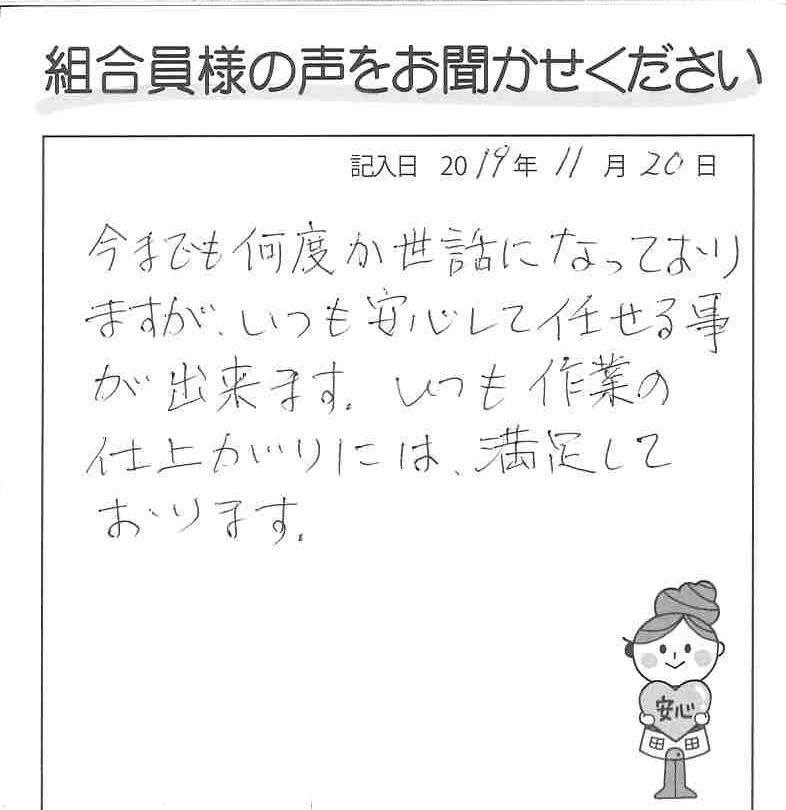 組合員様の声をお聞かせください
記入日 2019年 11月 20日
今までも何度か世話になっており
ますが、いつも安心して任せる事
が出来ます。いつも作業の
仕上がりには、満足して
おります。
安心